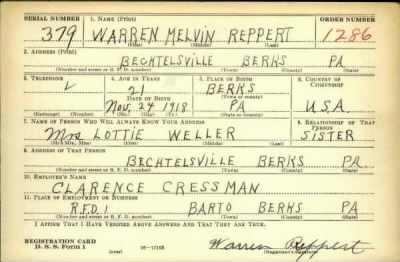 SERIAL NUMBER 1. NAME (Print) ORDER NUMBER
379 WARREN MELVIN REPPERT 1286
(First) (Middle) (Last)
2. ADDRESS (Print)
BECHTELSVILLE BERKS PA
(Number and street or R. F. D. number) (Town) (County) (State)
3. TELEPHONE 4. AGE IN YEARS 5. PLACE OF BIRTH 6. COUNTRY OF CITIZENSHIP
21 BERKS
DATE OF BIRTH (Town or county)
Nov. 24 1918 PA U.S.A.
(Exchange) (Number) (Mo.) (Day) (Yr.) (State or country)
7. NAME OF PERSON WHO WILL ALWAYS KNOW YOUR ADDRESS 8. RELATIONSHIP OF THAT PERSON
Mrs LOTTIE WELLER SISTER
(Mr., Mrs., Miss) (First) (Middle) (Last)
9. ADDRESS OF THAT PERSON
BECHTELSVILLE BERKS PA.
(Number and street or R. F. D. number) (Town) (County) (State)
10. EMPLOYER'S NAME
CLARENCE CRESSMAN
11. PLACE OF EMPLOYMENT OR BUSINESS
R.F.D. 1 BARTO BERKS PA
(Number and street or R. F. D. number) (Town) (County) (State)
I AFFIRM THAT I HAVE VERIFIED ABOVE ANSWERS AND THAT THEY ARE TRUE.
REGISTRATION CARD
D. S. S. Form 1 (over) 16—17105 Warren Reppert
(Registrant's signature)